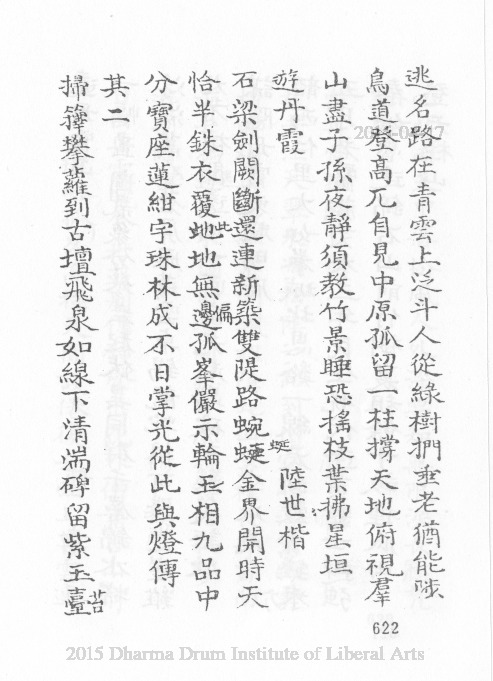 逃名路在青雲上泛斗人從綠樹捫垂老猶能陟
鳥道登高兀自見中原孤留一柱撐天地俯視羣
山盡子孫夜靜須教竹景睡恐搖枝葉拂星垣
遊丹霞 陸世楷
石梁劍闕斷還連新築雙隄路蜿蜒金界開時天
蜒
恰半銖衣覆地地無邊孤峯儼示輪王相九品中
此 偏
分寶座蓮紺宇珠林成不日掌光從此與燈傳
其二
掃籜攀蘿到古壇飛泉如線下清湍碑留紫玉臺
苔
622
2015 Dharma Drum Institute of Liberal Arts